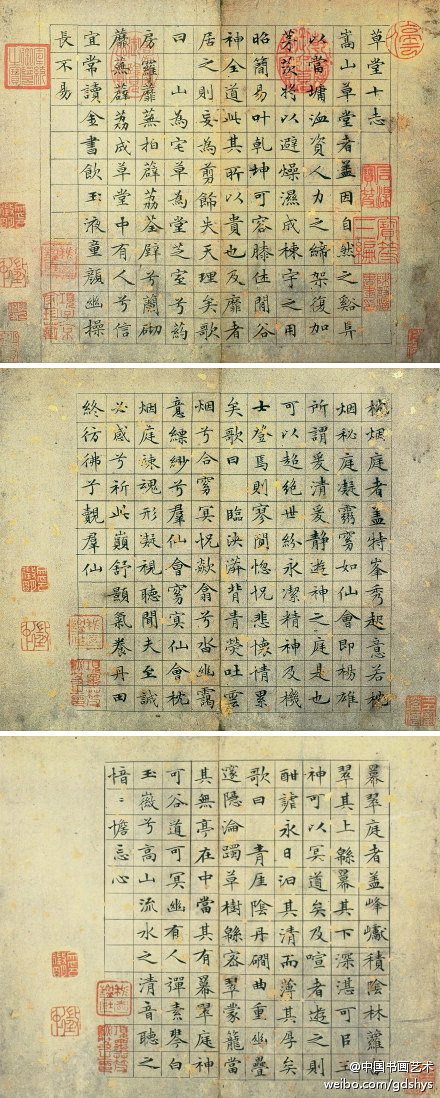 草堂十志
嵩山草堂者盖因自然之谿阜
以當墉洫資人力之締架復加
茅茨將以避燥濕成棟宇之用
昭簡易叶乾坤可容膝休閒谷
神全道此其所以貴也及靡者
居之則妄為剪飾失天理矣歌
曰 山為宅草為堂芝室兮葯
房羅蘼蕪拍薜荔荃壁兮蘭砌
蘼蕪薜荔成草堂中有人兮信
宜常讀金書飲玉液童顏幽操
長不易
枕烟庭者盖特峯秀起意若枕
烟秘庭凝霨窅如仙會即楊雄
所謂爰清爰静遊神之庭是也
可以超絶世紛永潔精神及機
士登焉則寥闃惚怳悲懷情累
矣歌曰 臨泱漭背青熒吐雲
烟兮合窅冥怳欻翕兮沓幽靄
意縹緲兮羣仙會窅冥仙會枕
烟庭竦魂形凝視聽聞夫至誠
必感兮祈此巔舒顥氣養丹田
終彷彿兮覯羣仙
冪翠庭者盖峰巘積陰林蘿沓
翠其上緜冪其下深湛可以王
神可以冥道矣及喧者遊之則
酣謔永日汩其清而薄其厚矣
歌曰 青崖陰丹磵曲重幽疊
邃隱淪躅草樹緜密翠蒙籠當
其無亭在中當其有冪翠庭神
可谷道可冥幽有人彈素琴白
玉徽兮高山流水之清音聽之
愔〻憺忘心
@中国书画艺术
weibo.com/gdshys